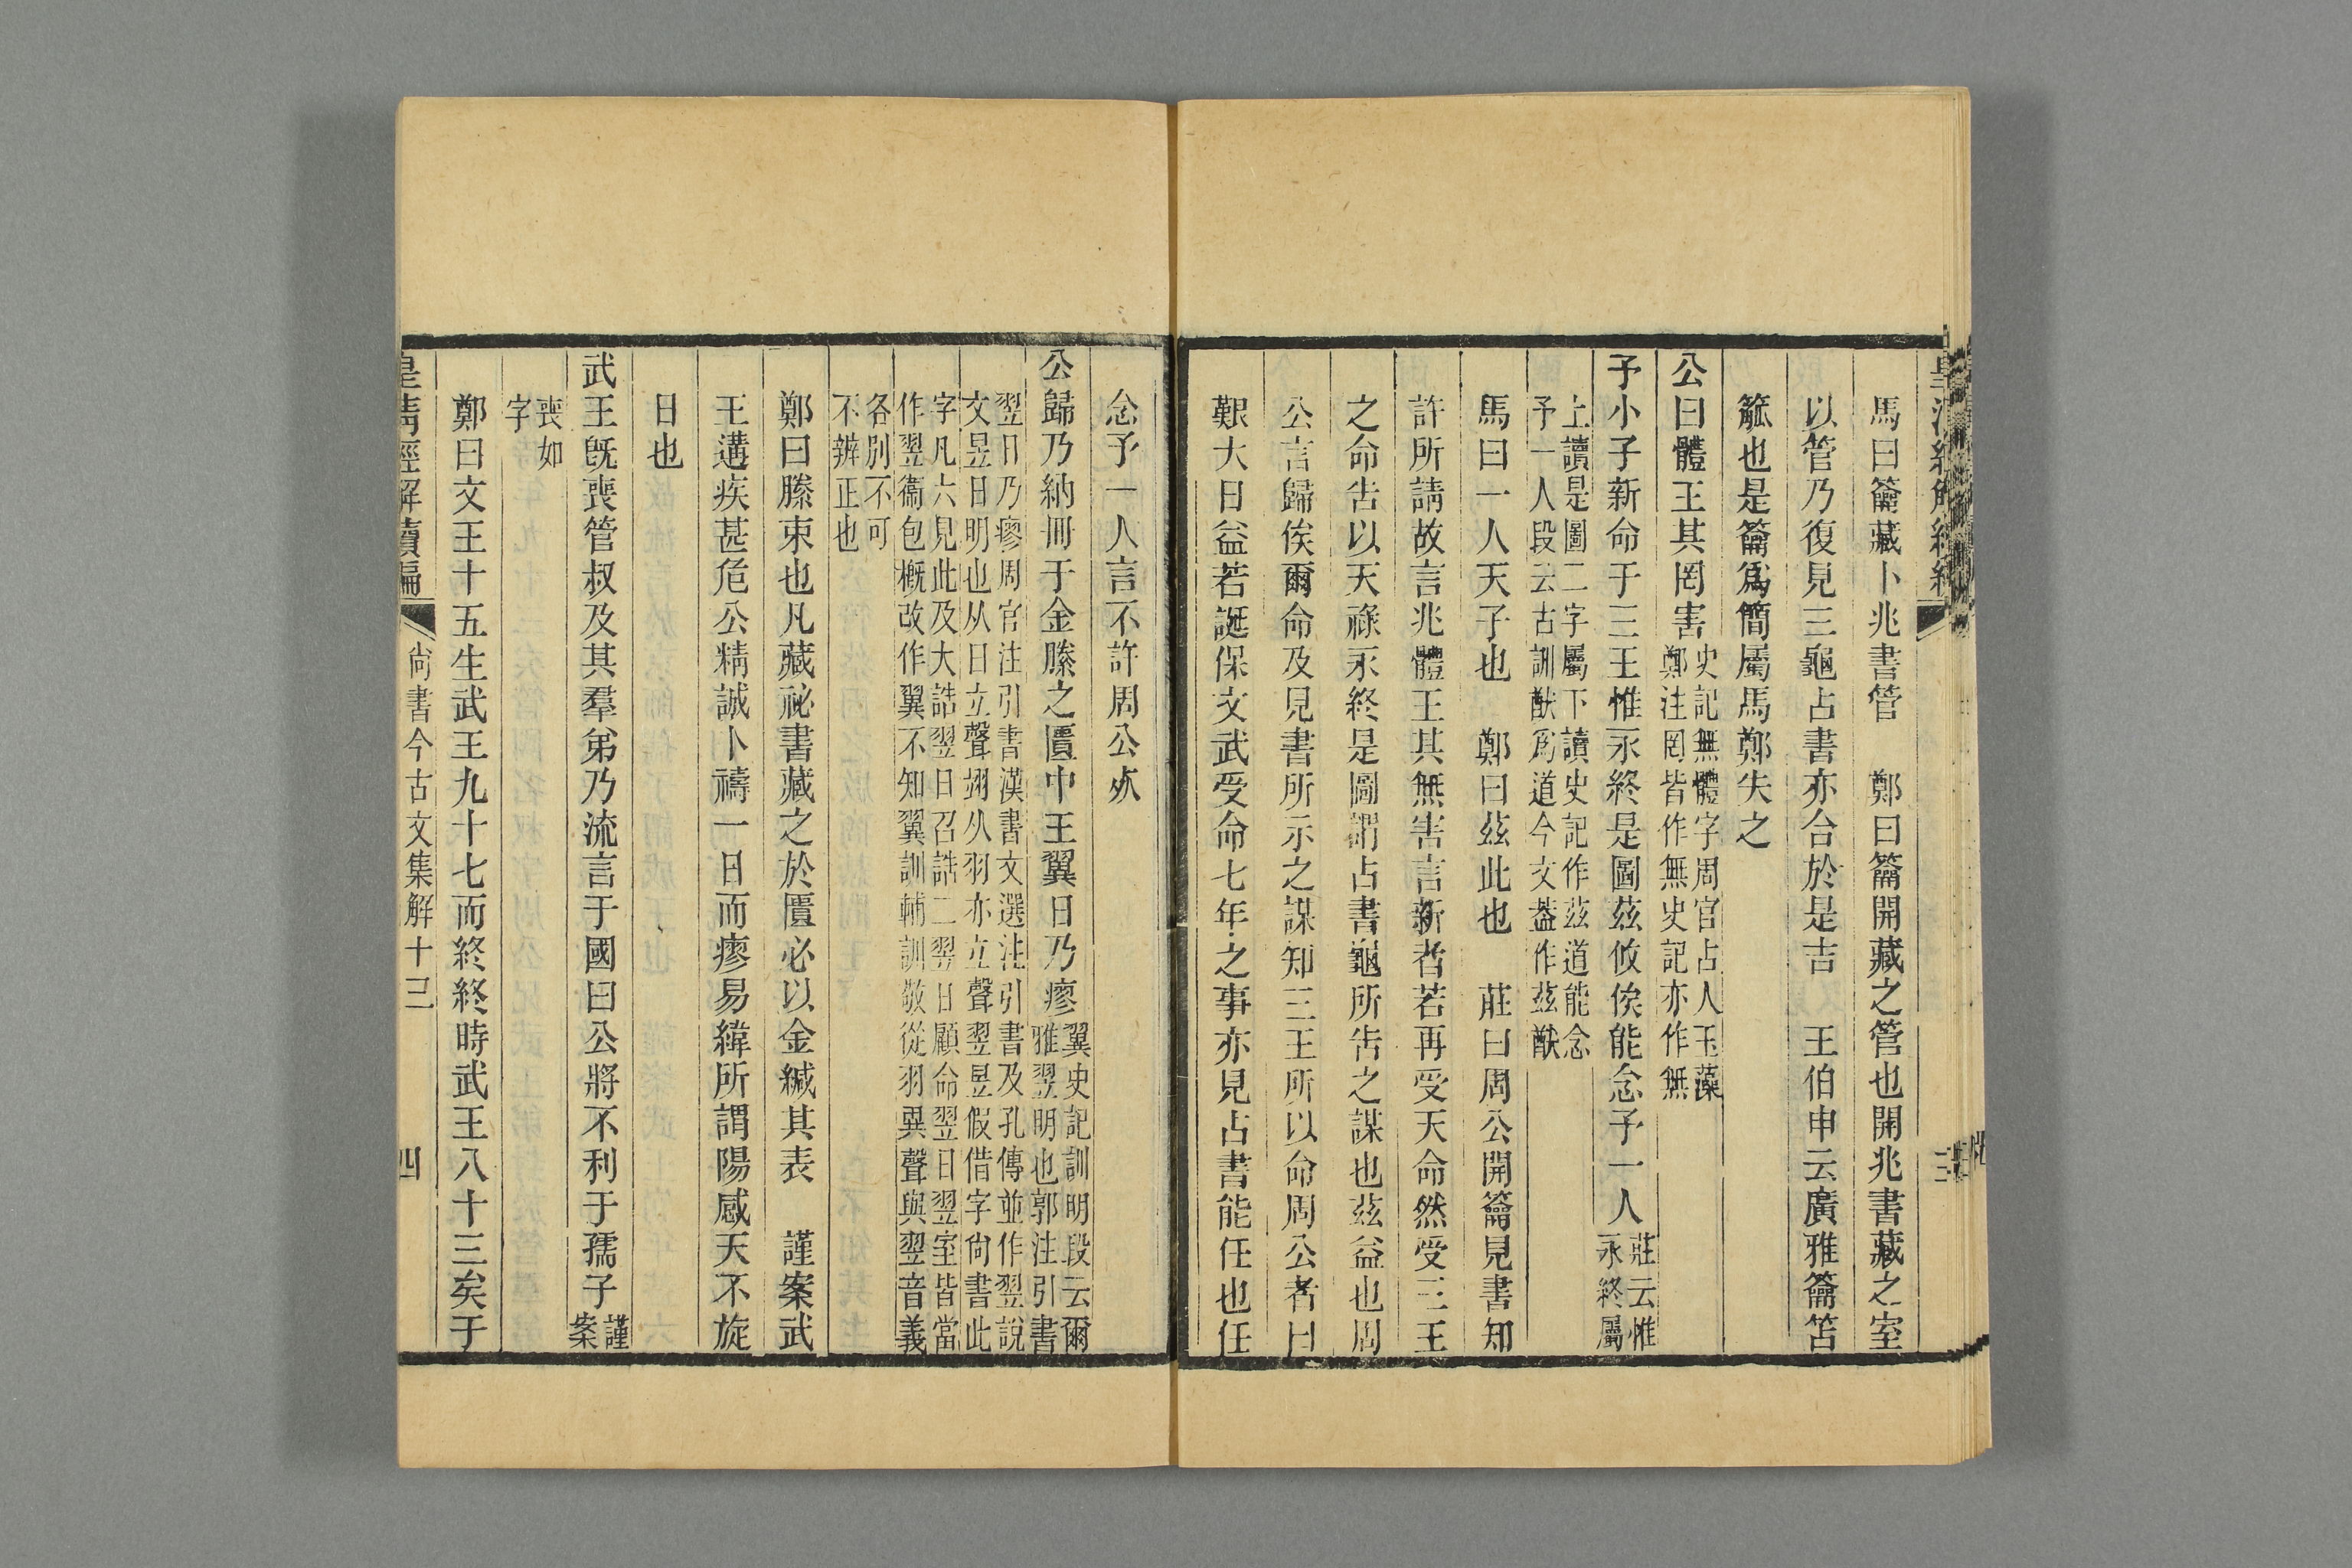 馬曰籥藏卜兆書管　鄭曰籥開藏之管也開兆書藏之室
以管乃復見三龜占書亦合於是吉　王伯申云廣雅籥笘
籬也是籥爲簡屬馬鄭失之
公曰體王其罔害史記無體字周官占人玉藻
鄭注罔皆作無史記亦作無
予小子新命于三王惟永終是圖茲攸俟能念予一人莊云惟
永終屬
上讀是圖二字屬下讀史記作茲道能念
予一人段云古訓猷爲道今文葢作茲猷
馬曰一人天子也　鄭曰茲此也　莊曰周公開籥見書知
許所請故言兆體王其無害言新者若再受天命然受三王
之命告以天祿永終是圖謂占書龜所告之謀也茲益也周
公言歸俟爾命及見書所示之謀知三王所以命周公者曰
艱大日益若誕保文武受命七年之事亦見占書能任也任
念予一人言不許周公代
公歸乃納冊于金縢之匱中王翼日乃瘳翼史記訓明段云爾
雅翌明也郭注引書
翌日乃瘳周官注引書漢書文選注引書及孔傳並作翌說
文昱日明也从日立聲翊从羽亦立聲翌昱假借字尙書此
字凡六見此及大誥翌日召誥二翌日顧命翌日翌室皆當
作翌衞包槪改作翼不知翼訓輔訓敬從羽異聲與翌音義
各別不可
不辨正也
鄭曰縢束也凡藏祕書藏之於匱必以金緘其表　謹案武
王遘疾甚危公精誠卜禱一日而瘳易緯所謂陽感天不旋
日也
武王旣喪管叔及其羣弟乃流言于國曰公將不利于孺子謹
案
喪如
字
鄭曰文王十五生武王九十七而終終時武王八十三矣于
皇清經解續編
尚書今古文集解十三
四